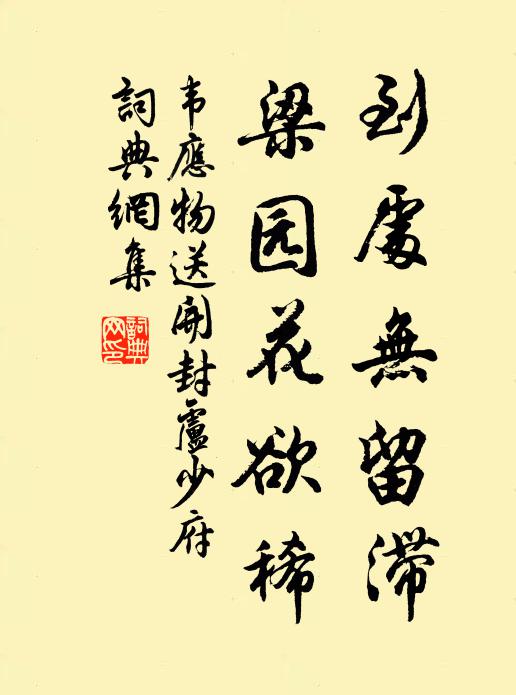 到處無留滞
梁园花欲稀
韦應物送開封盧少府
詞典網集
詞典网印